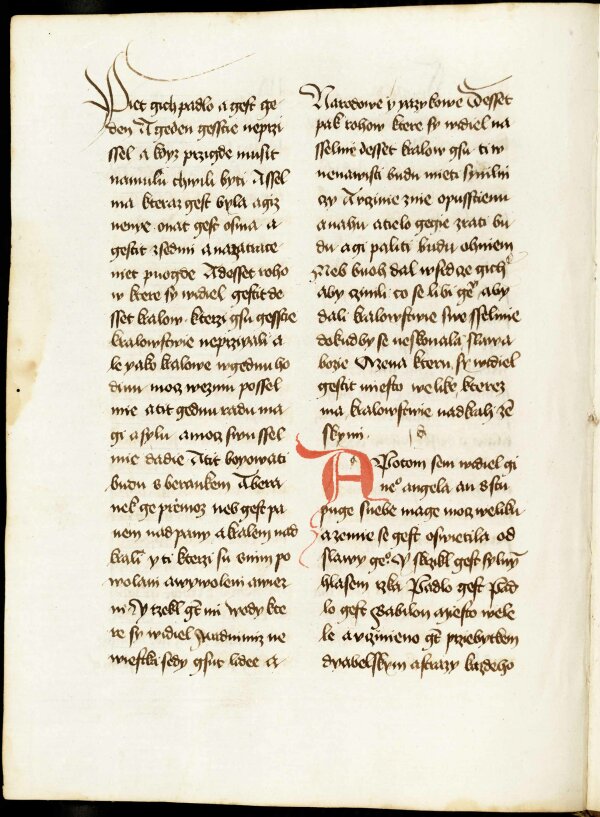 Piet gich padlo a gest ge
den A geden gesscie neprzi
ssel a kdyz przigde musit
namalu chwili byti A ssel
ma kteraz gest byla agiz
nenye onat gest osma a
gestit zsedmi anazatrace
niet puogde A desset roho
w ktere sy widiel gestit de
sset kralow kterzi gsu gesscie
kralowstwie neprzigali a
le yako kralowe wgednu ho
dinu moc wezmu possel
mie a tit gednu radu ma
gi a sylu a moc swu ssel
mie dadie A tit boyowati
budu s berankem A bera
nek ge przemoz neb gest pa
nem nad pany a kralem nad
krali y ti kterzi su s nim po
wolani a wywoleni a wier
ni Y rzekl gt mi wody kte
re sy widiel kardinniz ne
wiestka sedy gsut lidee a
Narodowe y yazykowe A desset
pak rohow ktere sy widiel na
sselmie desset kralow gsu ti w
nenawisti budu mieti smilni
czy A vczinie znie opusstienu
a nahu a tielo gegie zrati bu
du a gi paliti budu ohniem
Neb buoh dal w srdcze gich
aby czinili co se libi ge° aby
dali kralowstwie swe sselmie
dokudby se neskonala slawa
bozie A zena kteru sy widiel
gestit miesto welike kterez
ma kralowstwie nad krali ze
skymi
A Potom sem widiel gi
ne° angela an s stu
puge s nebe mage moc weliku
a zemie se gest oswietila od
slawy ge° Y skrzikl gest sylny
hlasem rzka Padlo gest Pad
lo gest Babilon miesto wele
le a vczinieno gt przebytkem
dyabelskym a strazy kazdeho